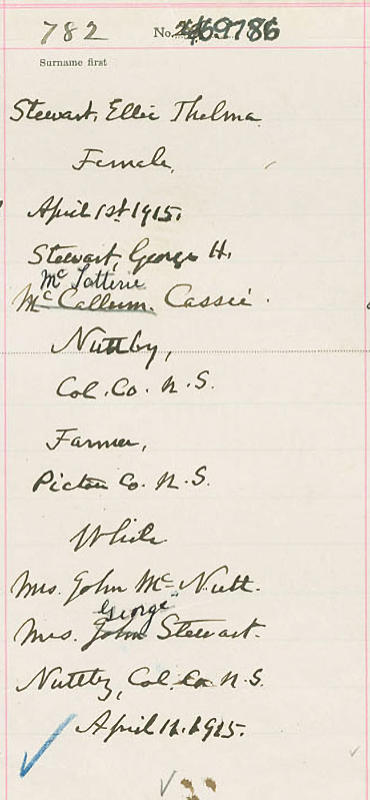 782 No. 69786
Surname first
Stewart, Ellie Thelma
Female,
April 1st 1915.
Stewart, George H.
Mc
Mc Callum. Cassie.
Nuttby,
Col. Co. N. S.
Farmer,
Pictou Co. N. S.
White
Mrs. John McNutt.
George
Mrs. John Stewart.
Nuttby, Col. Co N. S.
April 12. 1915.